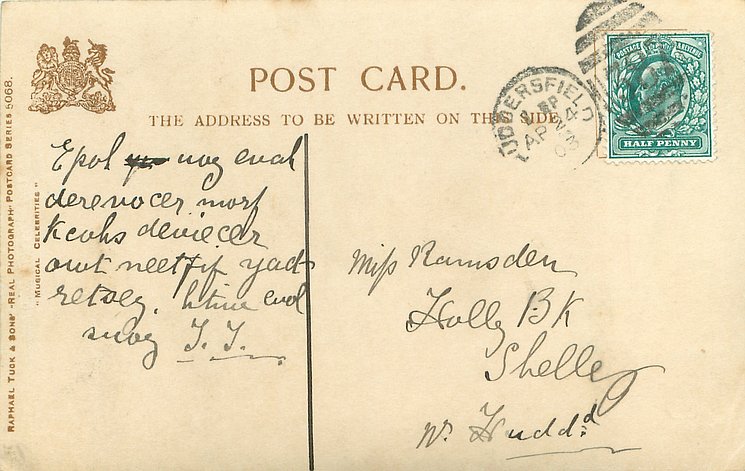 POST CARD.
THE ADDRESS TO BE WRITTEN ON THIS SIDE.
HUDDERSFIELD
AP 14
03
POSTAGE REVENUE
HALF PENNY
RAPHAEL TUCK & SONS' "REAL PHOTOGRAPH" POSTCARD SERIES 5068.
"MUSICAL CELEBRITIES"
Epoh uoy evah
derevocer morf
kcohs deviecer
owt neetfif yads
retsey. htiw evol
suoy J. J.
Miss Ramsden
Holly Bk
Shelley
Nr. Hudd.d